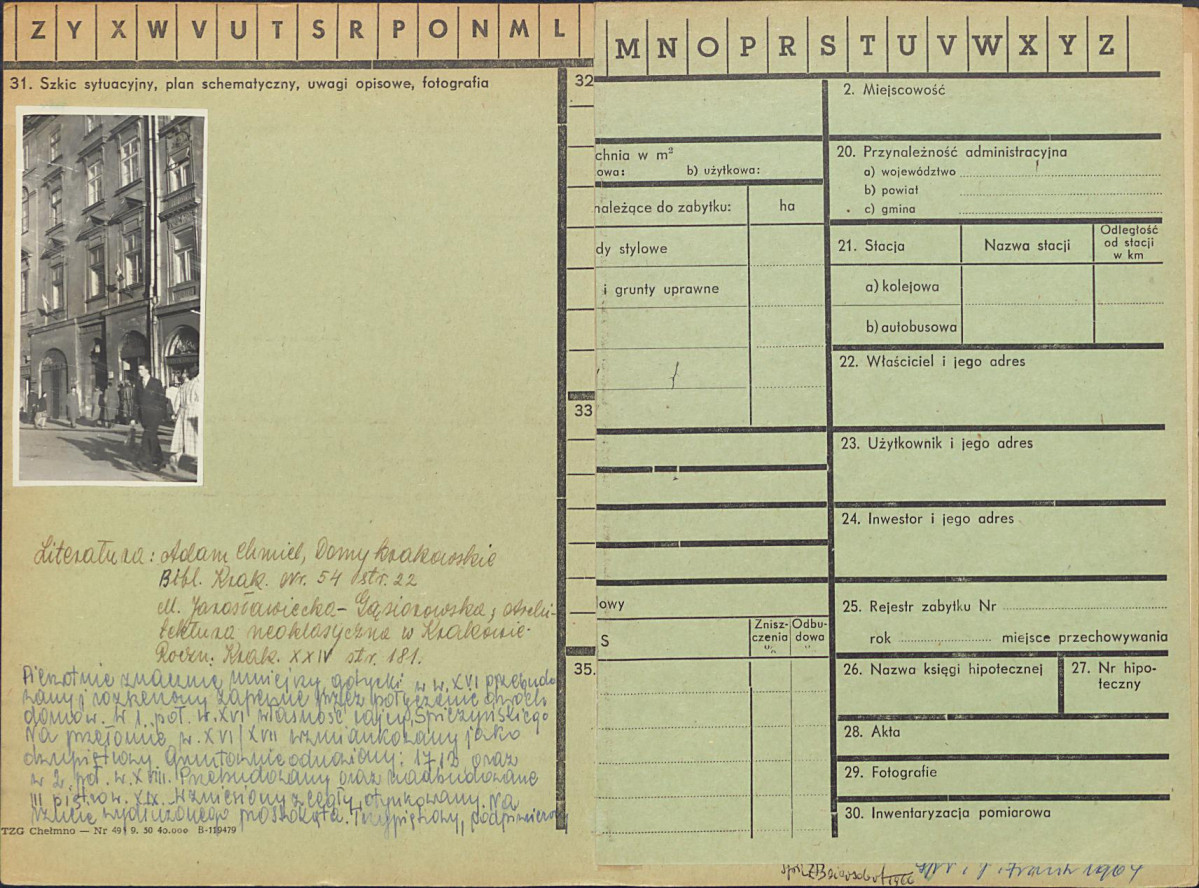 Z Y X W V U T S R P O N M L
31. Szkic sytuacyjny, plan schematyczny, uwagi opisowe, fotografia
32
33
35.
Literatura: Adam Chmiel, Domy krakowskie
Bibl. Krak. Nr. 54 str. 22
M. Jarosławiecka-Gąsiorowska, Archi-
tektura neoklasyczna w Krakowie
Roczn. Krak. XXIV str. 181.
Pierwotnie znacznie mniejszy, gotycki w w. XVI przebudo
wany i rozszerzony zapewne przez połączenie dwóch
domów. W 1. poł. w. XVI własność rajcy Spiczyńskiego
Na przełomie w. XVI/XVII wzmiankowany jako
dwupiętrowy. Gruntownie odnowiony: 1713 oraz
w 2. poł. w. XVIII. Przebudowany oraz nadbudowane
III piętro w. XIX. Wzniesiony z cegły, otynkowany. Na
rzucie wydłużonego prostokąta. Trzypiętrowy, podpiwniczony
TZG Chełmno — Nr 491 9. 50 40.000 B-119479
M N O P R S T U V W X Y Z
chnia w m²
owa: b) użytkowa:
należące do zabytku: ha
dy stylowe
i grunty uprawne
owy
S Znisz-czenia Odbu-dowa
2. Miejscowość
20. Przynależność administracyjna
a) województwo
b) powiat
c) gmina
21. Stacja Nazwa stacji Odległość od stacji w km
a) kolejowa
b) autobusowa
22. Właściciel i jego adres
23. Użytkownik i jego adres
24. Inwestor i jego adres
25. Rejestr zabytku Nr
rok miejsce przechowywania
26. Nazwa księgi hipotecznej
27. Nr hipo-
teczny
28. Akta
29. Fotografie
30. Inwentaryzacja pomiarowa
1964